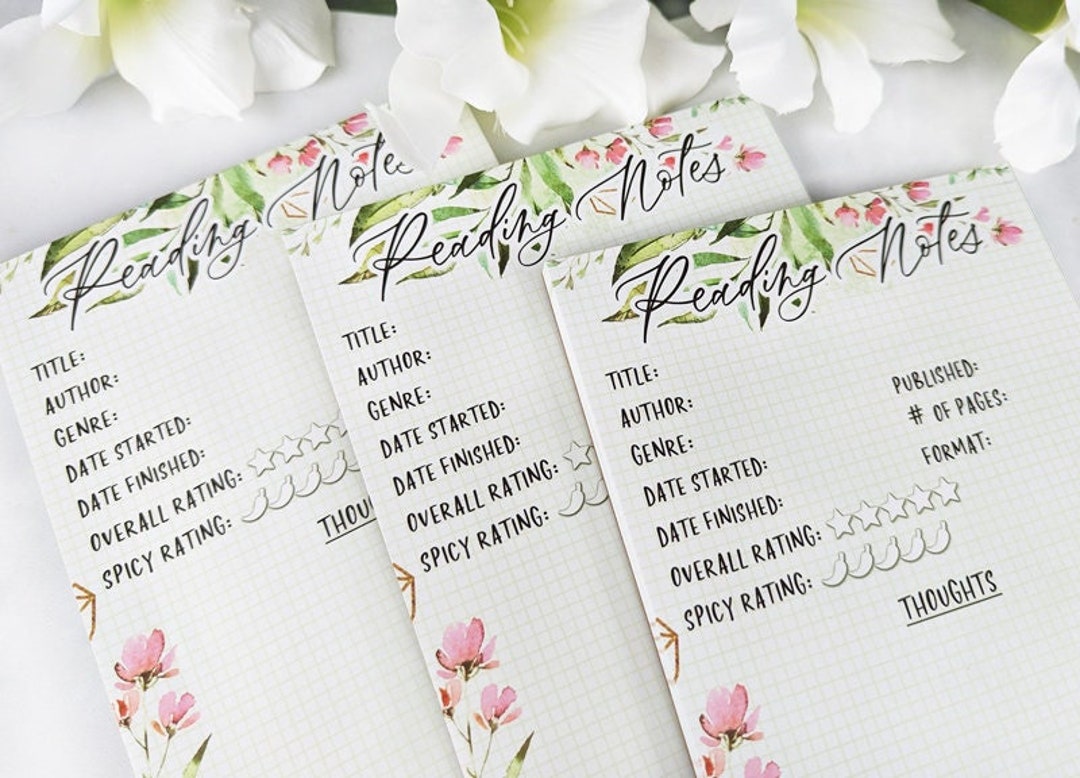 Reading Notes
TITLE:
AUTHOR:
GENRE:
DATE STARTED:
DATE FINISHED:
OVERALL RATING:
SPICY RATING:
THOU
Reading Notes
TITLE:
AUTHOR:
GENRE:
DATE STARTED:
DATE FINISHED:
OVERALL RATING:
SPICY RATING:
Reading Notes
TITLE:
PUBLISHED:
AUTHOR:
# OF PAGES:
GENRE:
FORMAT:
DATE STARTED:
DATE FINISHED:
OVERALL RATING:
SPICY RATING:
THOUGHTS